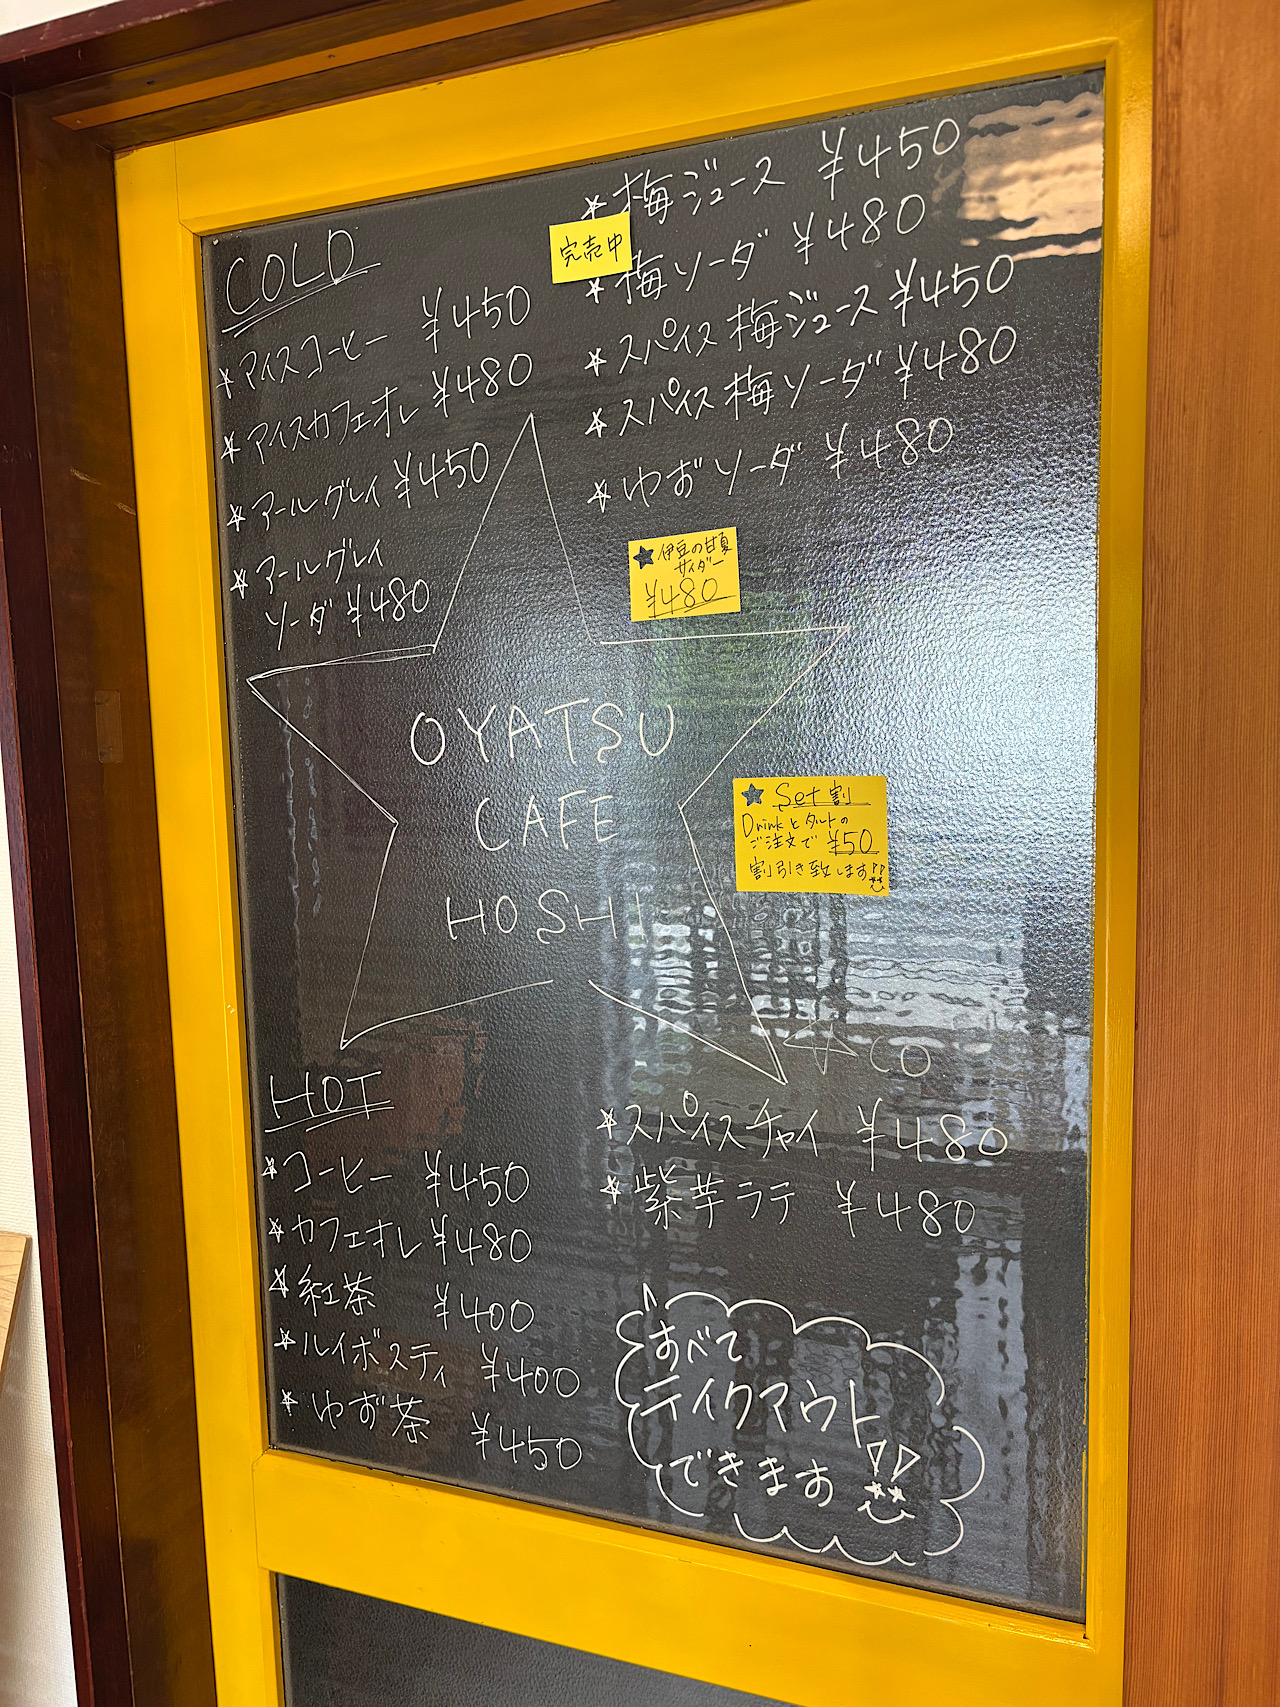 COLD
★アイスコーヒー ¥450
★アイスカフェオレ ¥480
★アールグレイ ¥450
★アールグレイ
ソーダ ¥480
★梅ジュース ¥450
完売中
★梅ソーダ ¥480
★スパイス梅ジュース ¥450
★スパイス梅ソーダ ¥480
★ゆずソーダ ¥480
★伊豆の甘夏
サイダー
¥480
OYATSU
CAFE
HOSHI
★Set割
Drinkとタルトの
ご注文で ¥50
割引き致します!!
☆CO
HOT
★コーヒー ¥450
★カフェオレ ¥480
★紅茶 ¥400
★ルイボスティ ¥400
★ゆず茶 ¥450
★スパイスチャイ ¥480
★紫芋ラテ ¥480
すべて
テイクアウト
できます!!